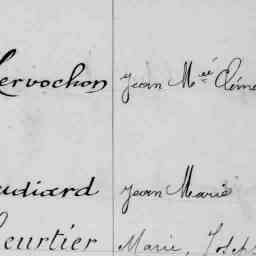 ervochon Jean M.ee Cléme
udiard Jean Marie
eurtier Marie, Joseph